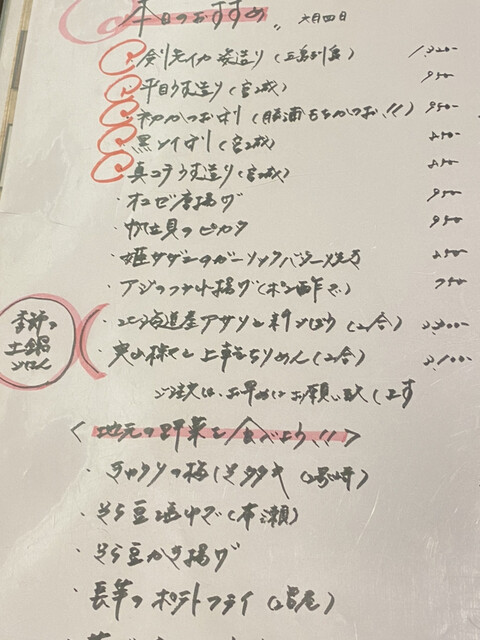 本日のおすすめ!! 六月四日
剣先イカ姿造り(五島列島) 1,320-
平目うす造り(宮城) 950-
初かつお刺(勝浦もちかつお!!) 950-
黒ソイ刺(宮城) 850-
真コチうす造り(宮城) 850-
・オコゼ唐揚げ 950
・帆立貝のピカタ 950
・姫サザエのガーリックバター焼き 850
・アジのフライ揚げ(ポン酢で) 750
季節の土鍋ごはん
・北海道産アサリと新ごぼう(2合)
・実山椒と上乾ちりめん(2合) 2,100-
ご注文は、お早めにお願い致します
<地元の野菜を食べよう!!>
・きゅうりの梅しそタタキ
・そら豆塩ゆで
・そら豆かき揚げ
・長芋のポテトフライ